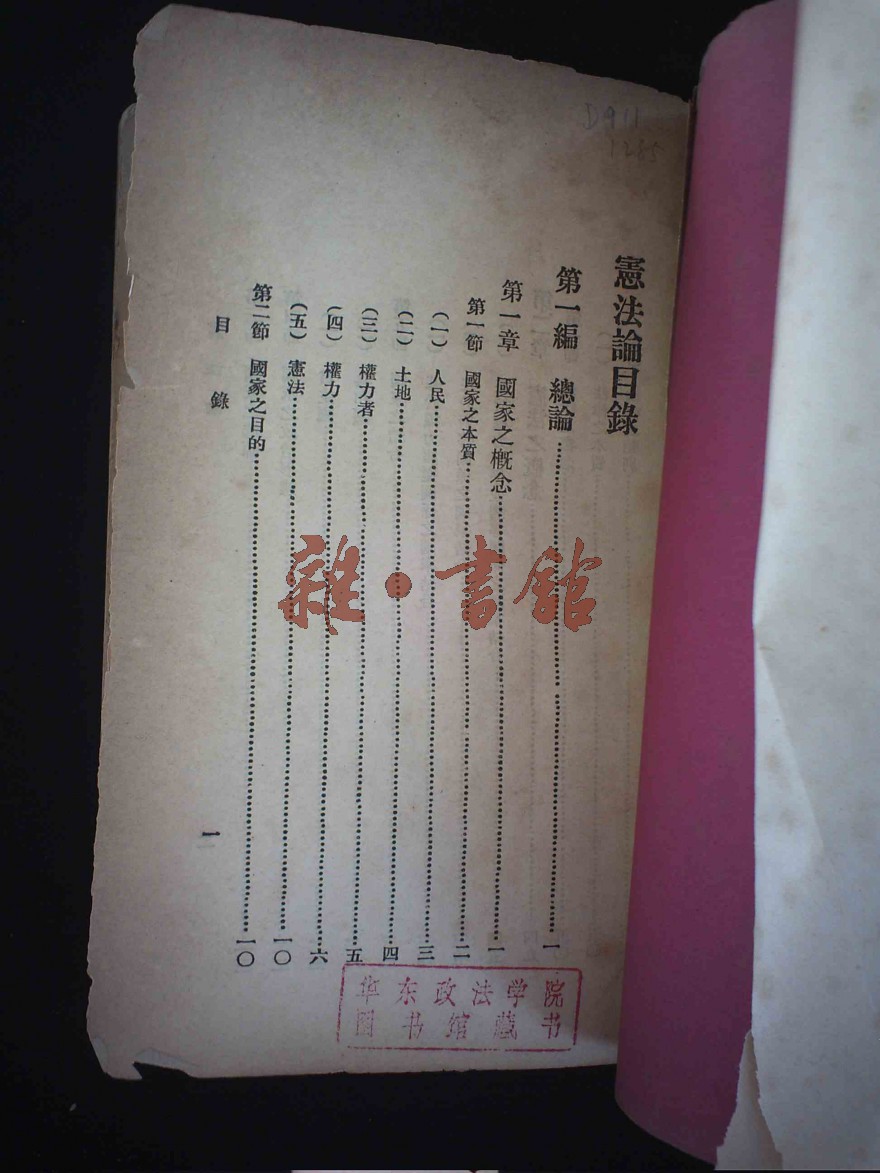 憲法論目錄
第一編 總論 一
第一章 國家之概念 一
第一節 國家之本質 二
(一) 人民 三
(二) 土地 四
(三) 權力者 五
(四) 權力 六
(五) 憲法 一〇
第二節 國家之目的 一〇
目錄 一
雜·書館
华东政法学院
图书馆藏书
D911